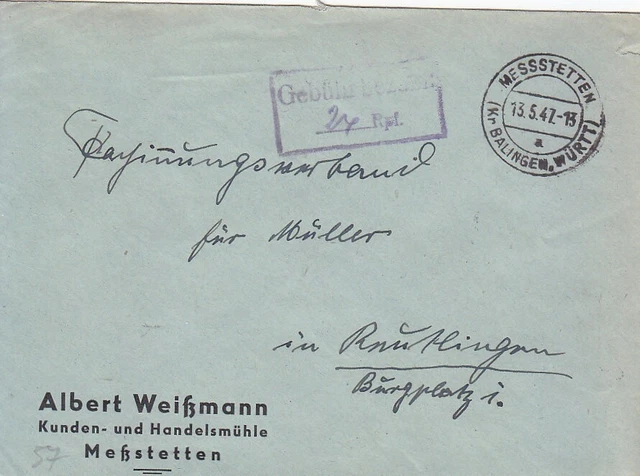 Gebühr bezahlt
24 Rpf.
MESSSTETTEN
13.5.47.-13
a
(Kr. BALINGEN, WÜRTT.)
Rechnungsverband
für Müller
in Reutlingen
Burgplatz 1.
Albert Weißmann
Kunden- und Handelsmühle
Meßstetten
57